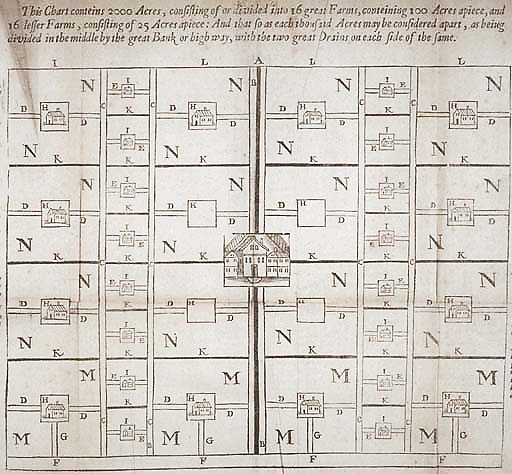 This Chart conteins 2000 Acres, consisting of or divided into 16 great Farms, conteining 100 Acres apiece, and
16 lesser Farms, consisting of 25 Acres apiece: And that so as each thousand Acres may be considered apart, as being
divided in the middle by the great Bank or high way, with the two great Drains on each side of the same.
I L A L L
N I N B N I N
H E E H H E H
D C C D D C C D
D D D D
I I
N K K N K N K K N K
N I N N I N
D H E E D H H D E E H D
D D D D
I I
N K E N K K E N K
C N C N N C C N
I I
H E E H H E E H
D D D D D D D D
N I N N I N
K K K K
M I M M I M
H E E H H E E H
D D D D D D D D
M G C I M G B M G C I M G
F F F F